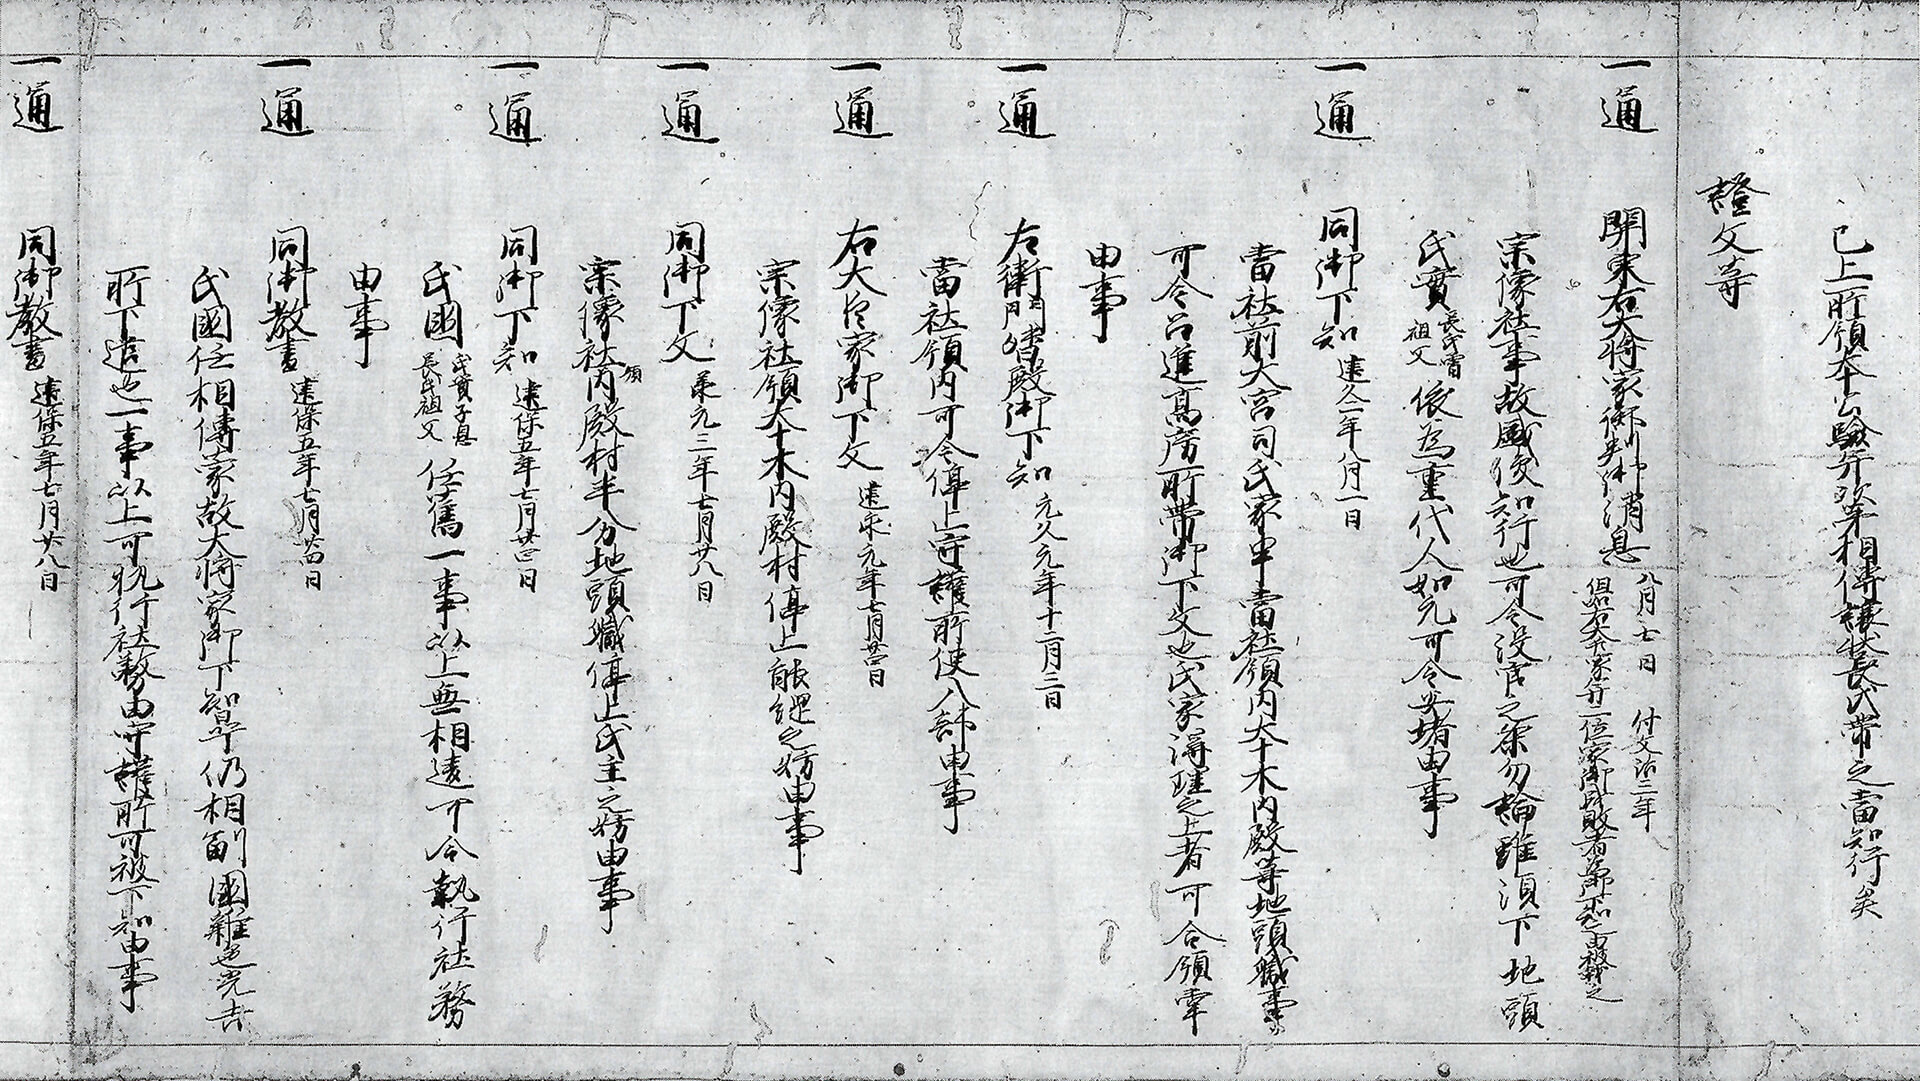 已上所領本公驗并次第相傳讓状長氏帶之當知行矣
證文等
一通 關東右大將家御判御消息 八月七日 付文治二年
但右大将家并二位家御成敗者 御下知 由被載之
宗像社事故盛俊知行也可令没官之条勿論雖須下地頭
氏實 長氏曽祖父 依為重代人如元可令安堵由事
一通 同御下知 建久二年八月一日
當社前大宮司氏家申當社領内大千木内殿等地頭職事
可令召進高房所帶御下文也氏家得理之上者可令領掌
由事
一通 右衛門督殿御下知 元久元年十二月三日
當社領内可令停止守護所使入部由事
一通 右大臣家御下文 建永元年七月廿四日
宗像社領大千木内殿村停止能綱之妨由事
一通 同御下文 承元三年七月廿八日
宗像社領内殿村半分地頭職停止氏主之妨由事
一通 同御下知 建保五年七月廿四日
氏國 氏實子息長氏祖父 任舊一事以上無相違可令執行社務
由事
一通 同御教書 建保五年七月廿四日
氏國任相傳家故大将家御下知早仍相副國雜色光吉
所下遣也一事以上可執行社務由守護所可被下知由事
一通 同御教書 建保五年七月廿八日